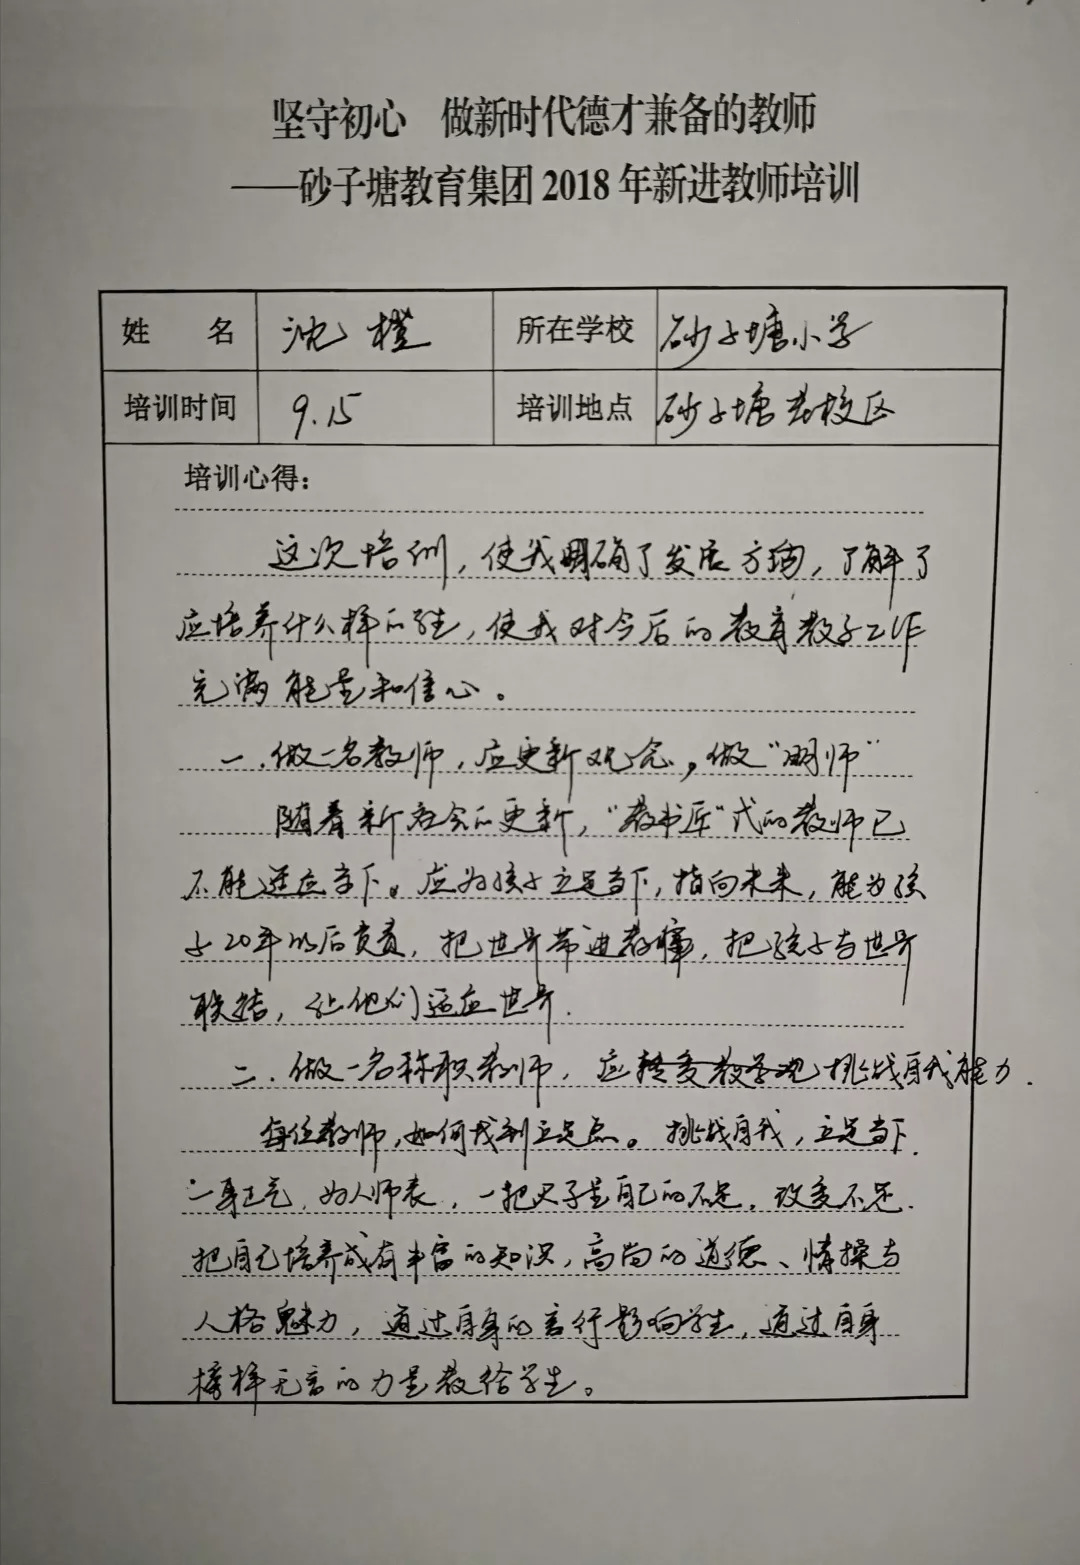 坚守初心 做新时代德才兼备的教师
——砂子塘教育集团2018年新进教师培训
姓 名 沈橙 所在学校 砂子塘小学
培训时间 9.15 培训地点 砂子塘老校区
培训心得：
这次培训，使我明确了发展方向，了解了
应培养什么样的学生，使我对今后的教育教学工作
充满能量和信心。
一.做一名教师，应更新观念，做“明师”
随着新社会的更新，“教书匠”式的教师已
不能适应当下。应为孩子立足当下，指向未来，能为孩
子20年以后负责，把世界带进教室，把孩子与世界
联结，让他们适应世界.
二.做一名称职教师，应挑战自我能力.
每位教师，如何找到立足点。挑战自我，立足当下.
一身正气，为人师表，一把尺子量自己的不足，改变不足.
把自己培养成有丰富的知识，高尚的道德、情操与
人格魅力，通过自身的言行影响学生，通过自身
榜样无言的力量教给学生。